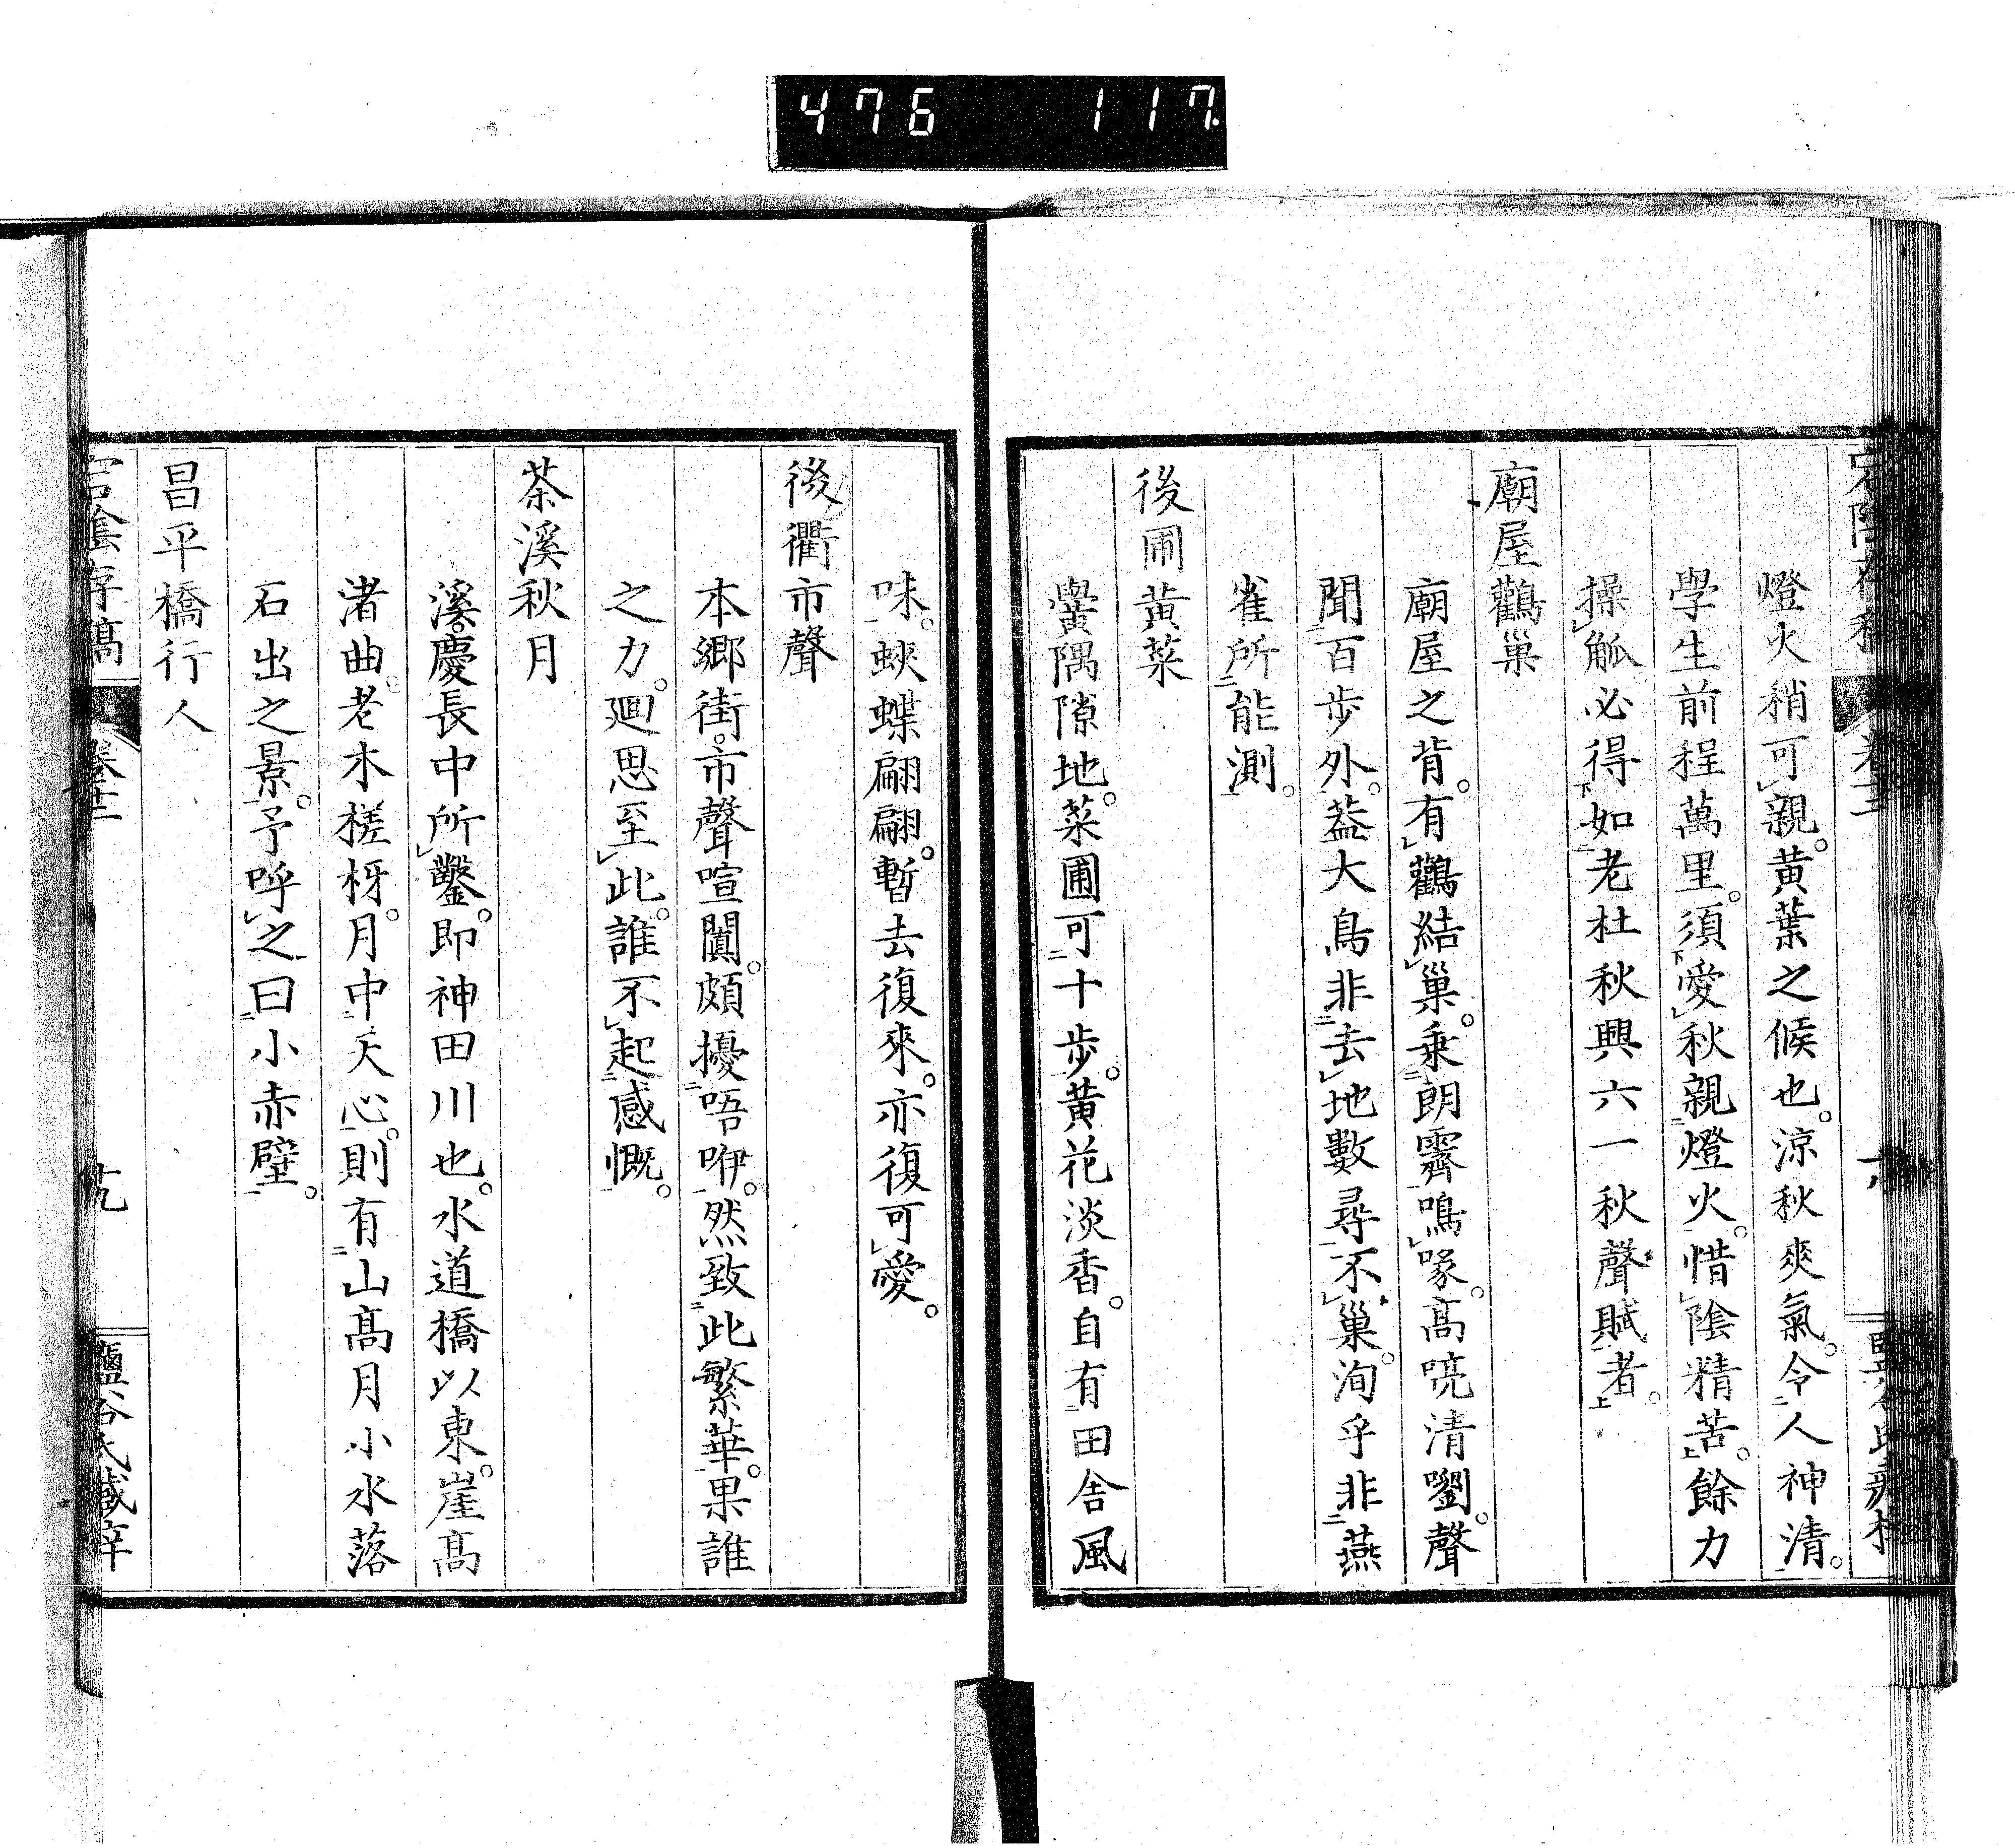 476 117
燈火稍可親。黃葉之候也。涼秋爽氣。令人神清。
學生前程萬里。須愛秋親燈火。惜陰精苦。餘力
操觚必得如老杜秋興六一秋聲賦者。
廟屋鸛巢
廟屋之背。有鸛結巢。乗朗霽鳴喙。高喨清嚠。聲
聞百步外。葢大鳥非去地數尋不巢。洵乎非燕
雀所能測。
後圃黃菜
黌隅隙地。菜圃可十步。黃花淡香。自有田舎風
味。蛺蝶翩翩。暫去復來。亦復可愛。
後衢市聲
本郷街。市聲喧闐。頗擾唔咿。然致此繁華。果誰
之力。廻思至此。誰不起感慨。
茶溪秋月
溪。慶長中所鑿。即神田川也。水道橋以東。崖髙
渚曲。老木槎枒。月中天心。則有山髙月小水落
石出之景。予呼之曰小赤壁。
昌平橋行人
宕陰存稿 卷十二 十九 鹽谷氏藏梓